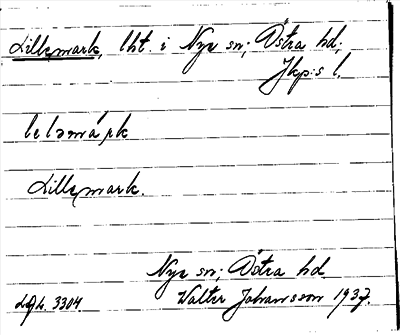 Lillemark, lht. i Nye sn; Östra hd;
Jkp:s l.
leləmárk
Lillemark.
Nye sn; Östra hd.
Lgh. 3304. Walter Johansson 1937.